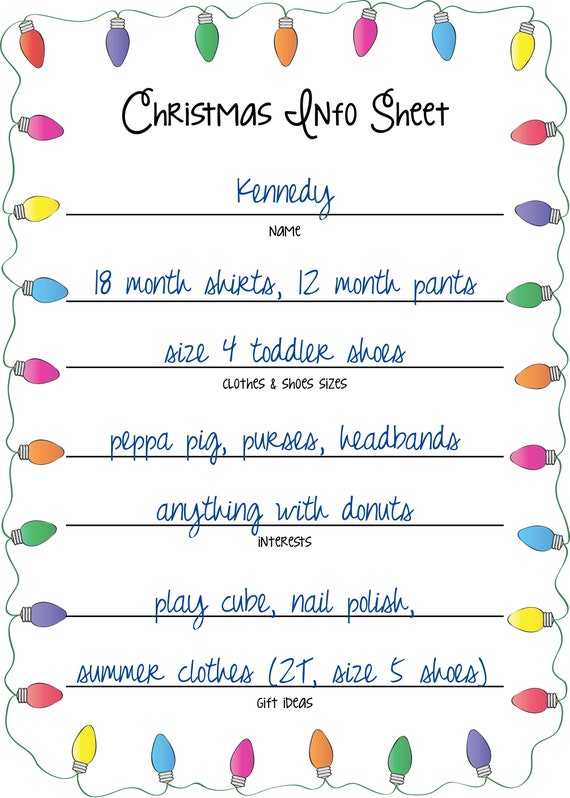 Christmas Info Sheet
Kennedy
Name
18 month shirts, 12 month pants
size 4 toddler shoes
Clothes & Shoes Sizes
peppa pig, purses, headbands
anything with donuts
Interests
play cube, nail polish,
summer clothes (2T, size 5 shoes)
Gift Ideas